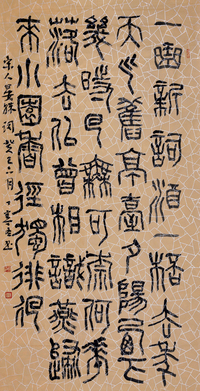 一曲新詞酒一桮去年
天气舊亭臺夕陽西下
幾時回無可柰何華
落去侣曾相識燕歸
來小園香徑獨徘徊
宋人晏殊詞 六月